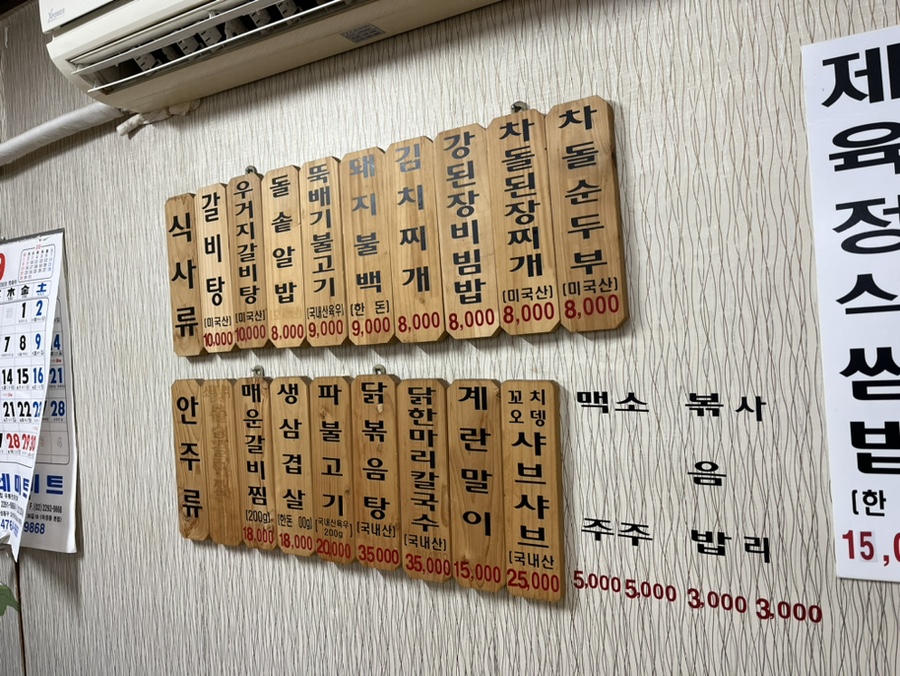 식사류
갈비탕 (미국산) 10,000
우거지갈비탕 (미국산) 10,000
돌솥알밥 8,000
뚝배기불고기 (국내산육우) 9,000
돼지불백 (한돈) 9,000
김치찌개 8,000
강된장비빔밥 8,000
차돌된장찌개 (미국산) 8,000
차돌순두부 (미국산) 8,000
안주류
매운갈비찜 (200g) 18,000
생삼겹살 (한돈 00g) 18,000
파불고기 (국내산육우) 200g 20,000
닭볶음탕 (국내산) 35,000
닭한마리칼국수 (국내산) 35,000
계란말이 15,000
꼬치오뎅 샤브샤브 (국내산 25,000
맥주 5,000
소주 5,000
볶음밥 3,000
사리 3,000
제육정스쌈밥
(한
15,0
木 金 土
1 2
7 8 9
14 15 16
21 22
28 29 30
21
28
9868